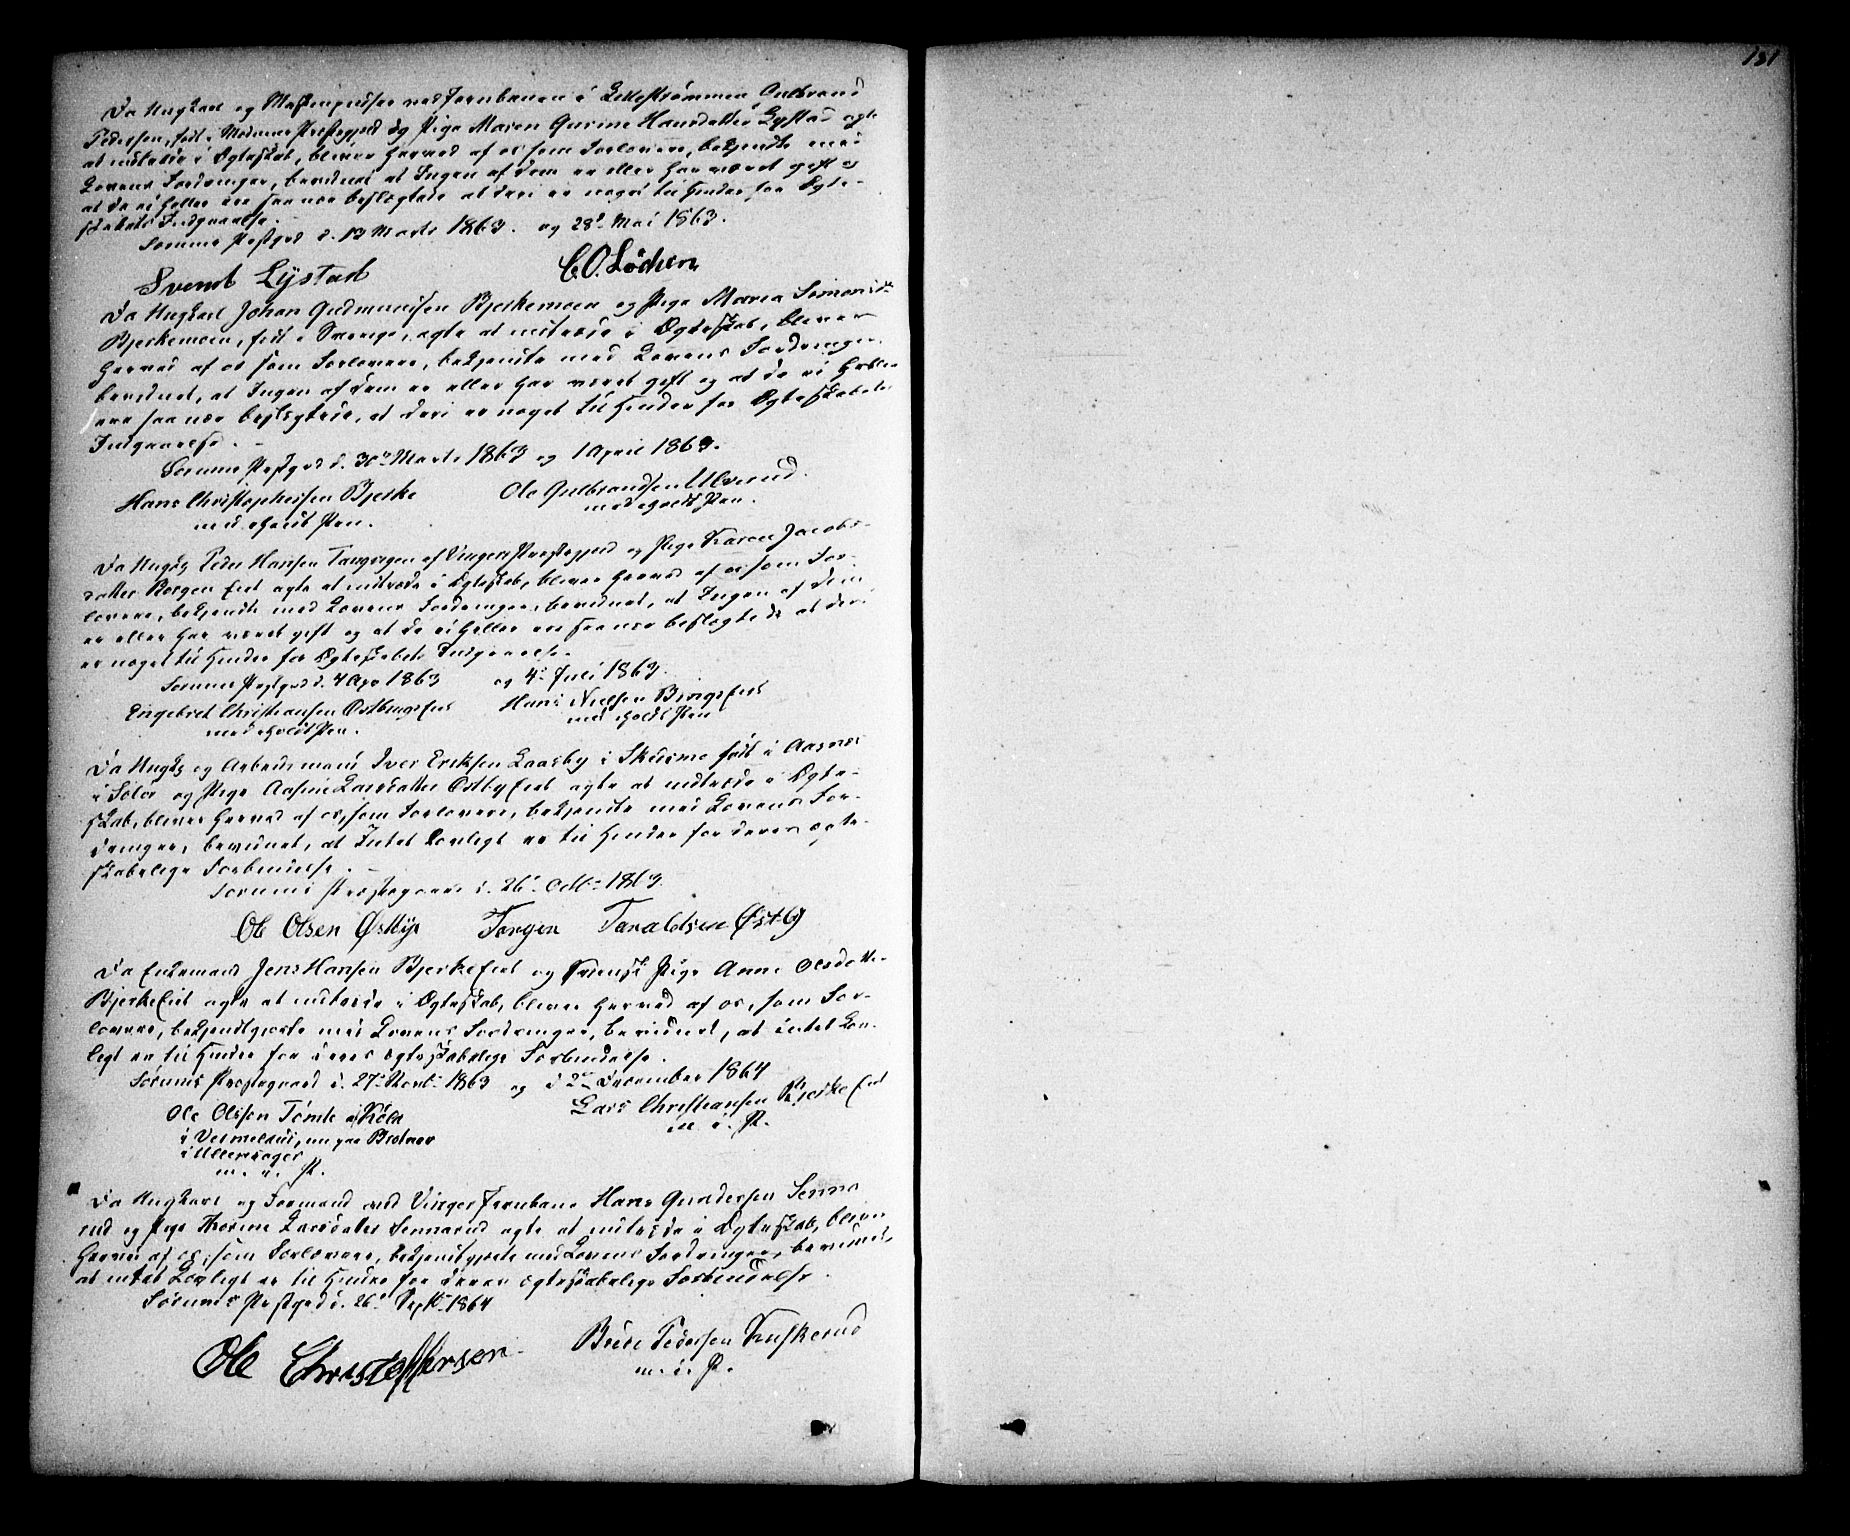 181
Da Ungkarl og Maskinpudser ved Jernbanen i Lillestrømmen Gulbrand
Pedersen, født i Modums Præstegjeld og Pige Maren Gurine Hansdatter Lystad agte
at indtræde i Ægteskab, bliver herved af os som Forlovere, bekjendte med
Lovens Fordringer, bevidnet at Ingen af dem er eller har været gift og
at de ei heller ere saa nær beslægtede at deri er noget til Hinder for Ægte-
skabets Indgaaelse.
Sørums Præstgrd d. 13 Marts 1863. og 28d Mai 1863.
Svend Lystad C.O. Lødsen
Da Ungkarl Johan Gudmundsen Bjerkemoen og Pige Maria Simonsdr
Bjerkemoen, født i Sverige, agte at indtræde i Ægteskab, bliver
herved af os som Forlovere, bekjendte med Lovens Fordringer
bevidnet, at Ingen af dem er eller har været gift og at de ei heller
ere saa nær beslægtede, at deri er noget til Hinder for Ægteskabets
Indgaaelse.
Sørums Præstgrd d. 30te Marts 1863 og 1 April 1863.
Hans Christophersen Bjerke Ole Gulbrandsen Ulverud
med iholdt Pen. med iholdt Pen.
Da Ungkg Peder Hansen Tangvigen af Vingers Præstegjeld og Pige Karen Jacobs-
datter Borgen Eiet agte at indtræde i Ægteskab, bliver herved af os som For-
lovere, bekjendte med Lovens Fordringer, bevidnet, at Ingen af dem
er eller har været gift og at de ei heller ere saa nær beslægtede at deri
er noget til Hinder for Ægteskabets Indgaaelse.
Sørums Præstgrd d. 7 Apr 1863 og 4de Juli 1863.
Engebret Christiansen Østbyeiet Hans Nielsen Bingseiet
med iholdt Pen. med iholdt Pen
Da Ungkg og Arbeidsmand Iver Eriksen Laasby i Skusme født i Aasnes
i Solør og Pige Aasine Larsdatter Østbyeiet agte at indtræde i Ægte-
skab, bliver herved af os, som Forlovere, bekjendte med Lovens For-
dringer, bevidnet, at Intet Lovligt er til Hinder for deres ægte-
skabelige Forbindelse.
Sørums Præstegaard d. 26d Octbr 1863.
Ole Olsen Østby Torgen Taraldsen Østby
Da Enkemand Jens Hansen Bjerkeeiet og svensk Pige Anne Olsdatter
Bjerkeeiet agte at indtræde i Ægteskab, bliver herved af os, som For-
lovere, bekjendtgjorte med Lovens Fordringer, bevidnet, at intet Lov-
ligt er til Hinder for deres ægteskabelige Forbindelse.
Sørums Præstegaard d. 27de Novbr 1863 og d 2den December 1864
Ole Olsen Tomte i Köla Lars Christiansen Bjerkeeiet
i Vermeland, nu paa m. i. P.
i Ullensager
m. i. P.
Da Ungkarl og Formand ved Vinger Jernbane Hans Gundersen Senne
rud og Pige Thorine Larsdatter Sennerud agte at indtræde i Ægteskab, bliver
herved af os, som Forlovere, bekjendtgjorte med Lovens Fordringer, bevidnet,
at intet Lovligt er til Hinder for deres ægteskabelige Forbindelse.
Sørums Præstgrd d. 26d Septbr 1864
Ole Christoffersen Pedersen Kuskerud
m. i. P.